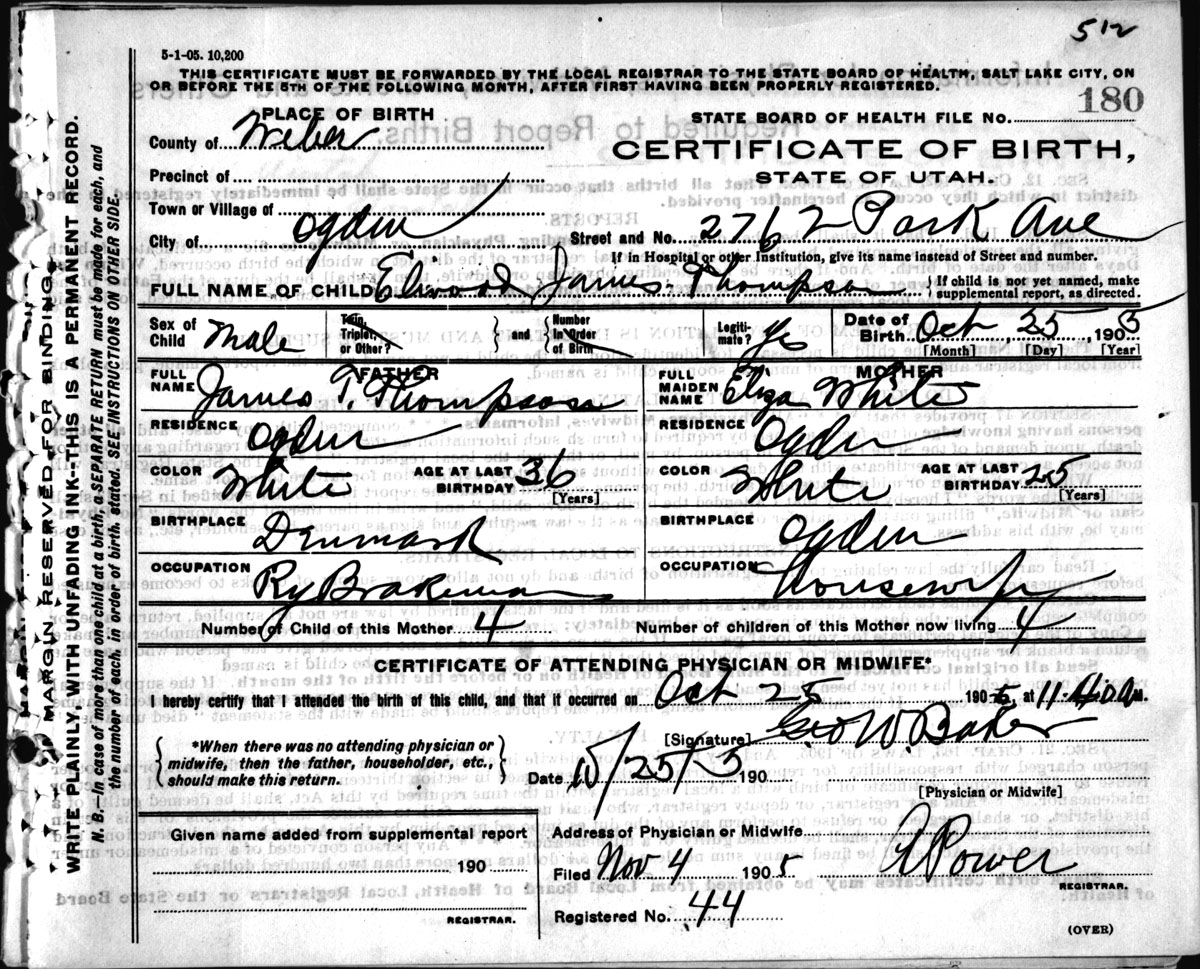 512
5-1-05. 10,200
THIS CERTIFICATE MUST BE FORWARDED BY THE LOCAL REGISTRAR TO THE STATE BOARD OF HEALTH, SALT LAKE CITY, ON
OR BEFORE THE 5TH OF THE FOLLOWING MONTH, AFTER FIRST HAVING BEEN PROPERLY REGISTERED.
PLACE OF BIRTH
STATE BOARD OF HEALTH FILE NO. 180
County of Weber
CERTIFICATE OF BIRTH,
Precinct of
STATE OF UTAH.
Town or Village of
City of Ogden Street and No. 2762 Park Ave
If in Hospital or other Institution, give its name instead of Street and number.
FULL NAME OF CHILD Elwood James Thompson { If child is not yet named, make supplemental report, as directed.
Sex of Child Male Twin, Triplet, or Other? } and { Number in Order of Birth Legiti-mate? Yes Date of Birth Oct 25 1905
[Month] [Day] [Year]
FATHER MOTHER
FULL NAME James T. Thompson FULL MAIDEN NAME Eliza White
RESIDENCE Ogden RESIDENCE Ogden
COLOR White AGE AT LAST BIRTHDAY 36 [Years] COLOR White AGE AT LAST BIRTHDAY 25 [Years]
BIRTHPLACE Denmark BIRTHPLACE Ogden
OCCUPATION Ry Brakeman OCCUPATION Housewife
Number of Child of this Mother 4 Number of children of this Mother now living 4
CERTIFICATE OF ATTENDING PHYSICIAN OR MIDWIFE*
I hereby certify that I attended the birth of this child, and that it occurred on Oct 25 1905 at 11 40 a M.
[Signature] Geo W. Baker
{ *When there was no attending physician or
midwife, then the father, householder, etc.,
should make this return. }
Date 10/25/5 190
[Physician or Midwife]
Given name added from supplemental report
190
REGISTRAR.
Address of Physician or Midwife
Filed Nov 4 1905 A Power
REGISTRAR.
Registered No. 44
(OVER)
MARGIN RESERVED FOR BINDING.
WRITE PLAINLY WITH UNFADING INK—THIS IS A PERMANENT RECORD.
N. B.—In case of more than one child at a birth, a SEPARATE RETURN must be made for each, and
the number of each, in order of birth, stated. SEE INSTRUCTIONS ON OTHER SIDE.